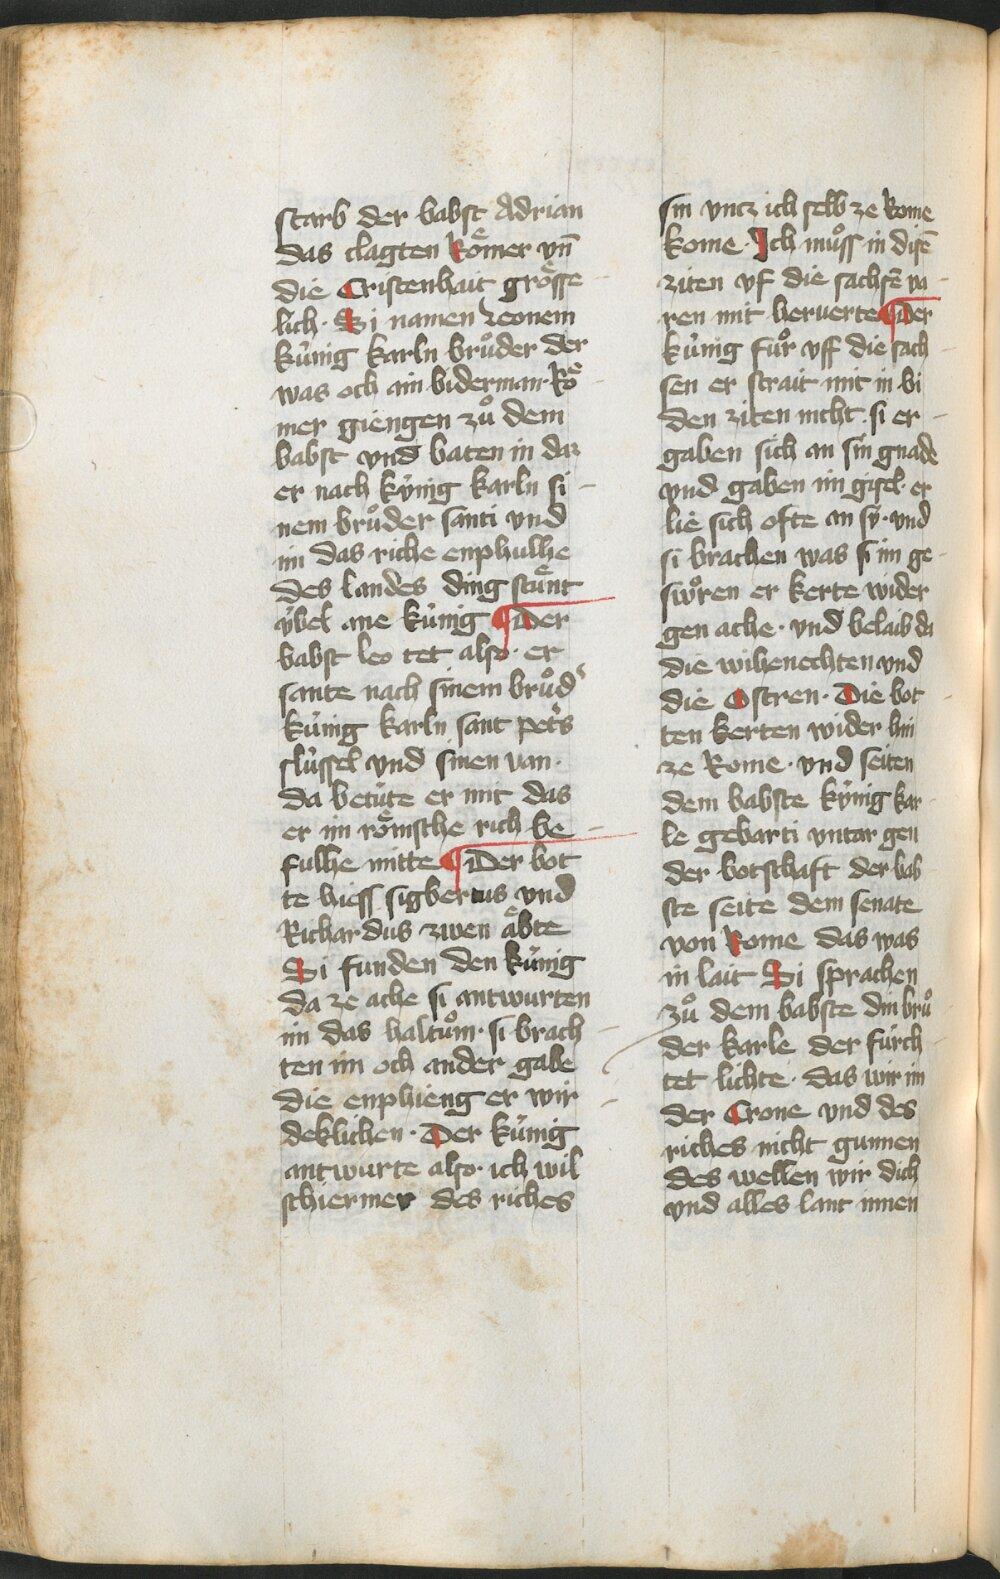 starb der babst Adrian
das clagten Roͤmer vn̄
die Cristenhait groͤsse
lich· Si namen Leonem
kuͤnig karln bruͦder der
was och ain biderman· Roͤ
mer giengen zuͦ dem
babst vnd baten in daz
er nach kuͤnig karln si
nem bruͦder santi vnd
im das riche enphulhe
des landes ding stuͤnt
vͤbel ane kuͤnig ¶ Der
babst leo tet also· er
sante nach sinem bruͦd᾽
kuͤnig karln sant pet᾽s
sluͤssel vnd sinen van·
da betuͤte er mit das
er im roͤmsche rich be
fulhe mitte ¶ Der bot
te hiess sigbertus vnd
Richardus zwen aͤbte
Si funden den kuͤnig
da ze ache si antwurten
im das haltuͦm· si brach
ten im och ander gabe
die enphieng er wir
deklichen· Der kuͤnig
antwurte also· ich wil
schiermer des riches
sin vncz ich selb ze Rome
kome· Ich muͦss in disē
ziten vf die sachsē va
ren mit herverte ¶ Der
kuͤnig fuͦr vff die sach
sen er strait mit in bi
den ziten nicht· si er
gaben sich an sin gnade
vnd gaben im gisel· er
lie sich ofte an sy· vnd
si brachen was si im ge
swuͦren er kerte wider
gen ache· vnd belaib da
die wihenechten vnd
die Ostren· Die bot
ten kerten wider hin
ze Rome· vnd seiten
dem babste kuͤnig kar
le gebarti vntar gen
der botschaft der bab
ste seite dem senate
von Rome das was
in lait Si sprachen
zuͦ dem babste din bruͦ
der karle der fuͤrch
tet lichte· das wir im
der Crone vnd des
riches nicht gunnen
des wellen wir dich
vnd alles lant innen